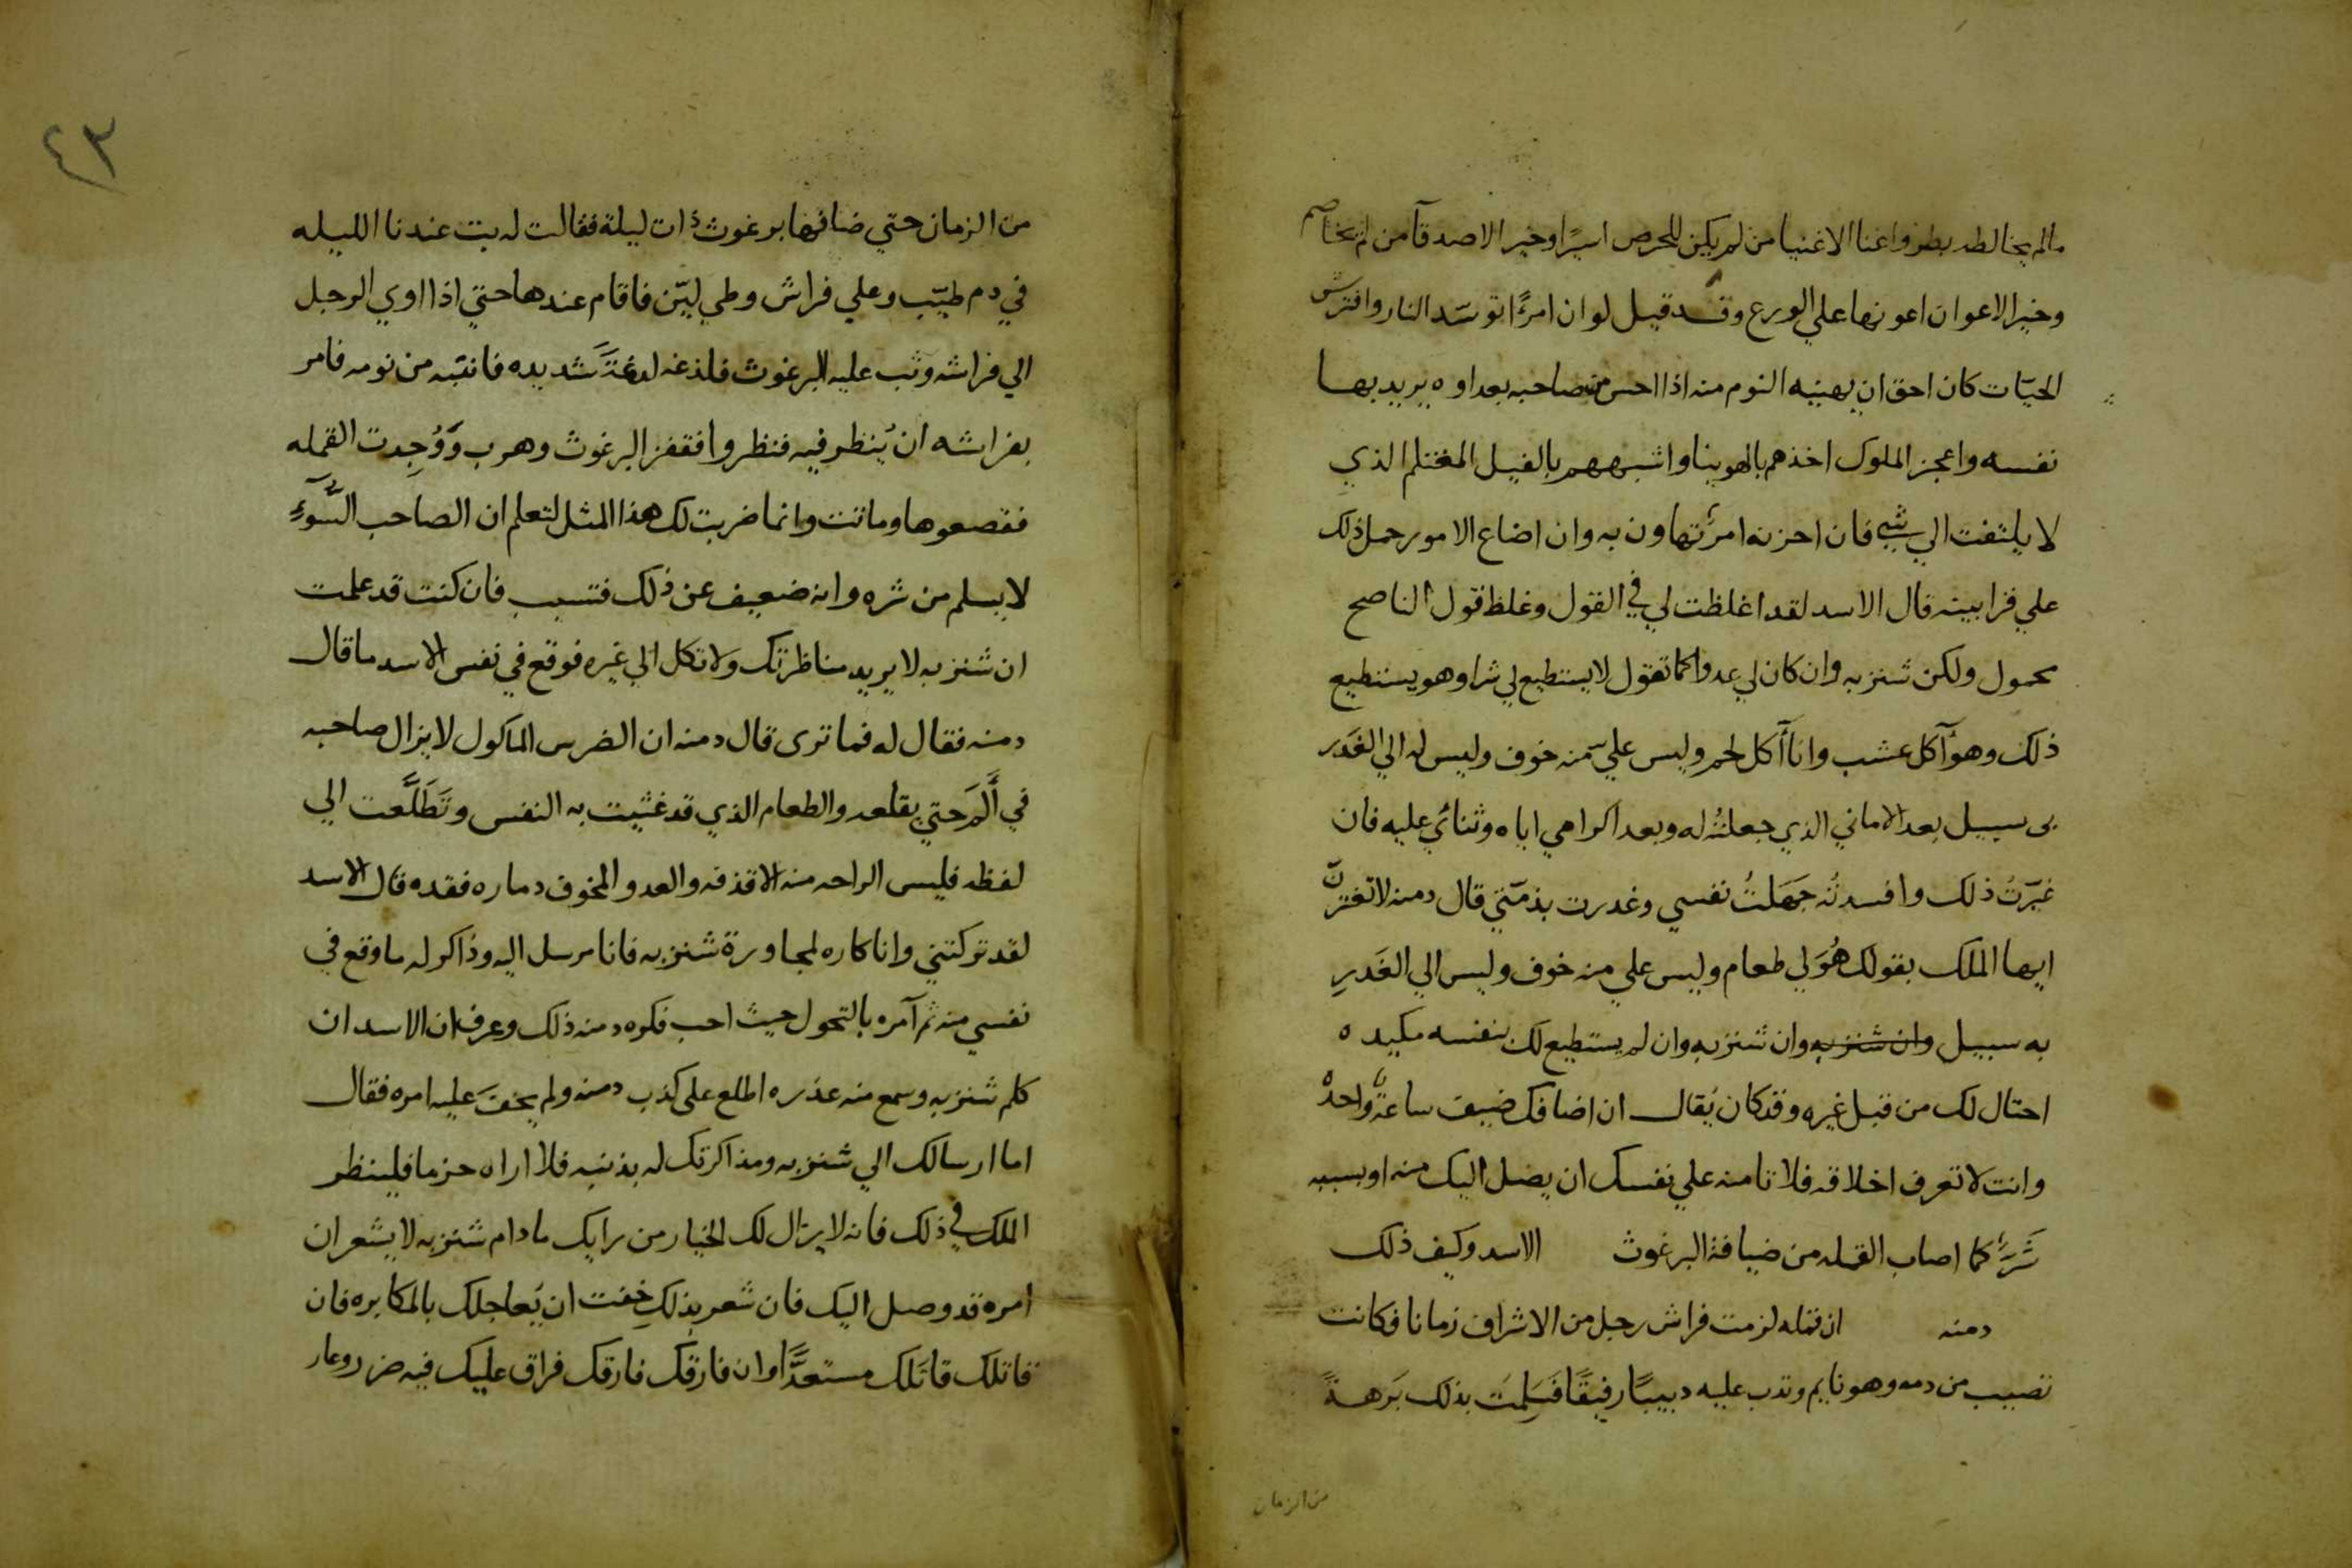 مالم يخالطه بطر واغنا الاغنيا من لم يكن للحرص اسيرًا وخير الاصدقآ من لم يخاصم
وخير الاعوان اعونها علي الورع وقد قيل لو ان امرءًا توسّد النار وافترش
الحيّات كان احق ان يهنيه النوم منه اذا احس من صاحبه بعداوه يريد بها
نفسه واعجز الملوك اخذهم بالهوينا واشبههم بالفيل المغتلم الذي
لا يلتفت الي شي فان احزنه امرٌ تهاون به وان اضاع الامور حمل ذلك
علي قرابينه قال الاسد لقد اغلظت لي في القول وغلظ قول الناصح
محمول ولكن شنزبه وان كان لي عدوا كما تقول لا يستطيع لي شرا وهو يستطيع
ذلك وهو آكل عشب وانا آكل لحم وليس عليّ منه خوف وليس له الي الغَدر
بى سبيل بعد الاماني الذي جعلتُه له وبعد اكرامي اياه وثنائي عليه فان
غيّرتُ ذلك وافسدتُه جَهَلتُ نفسي وغدرت بذمّتي قال دمنه لا تغترنّ
ايها الملك بقولك هُوَ لي طعام وليس علي منه خوف وليس الي الغَدرِ
به سبيل وان شنزبه وان شنزبه وان لم يستطيع لك بنفسه مكيده
احتال لك من قبل غيره وقد كان يُقال ان اضافك ضيف ساعةً واحدةً
وانت لا تعرف اخلاقه فلا تامنه علي نفسك ان يصل اليك منه او بسببه
شَرٌّ كما اصاب القمله من ضيافة البرغوث الاسد وكيف ذلك
دمنه ان قمله لزمت فراش رجل من الاشراف زمانا فكانت
تصيب من دمه وهو نايم وتدب عليه دبيبًا رفيقًا فَسَلِمَت بذلك بَرهةً
من الزمان
٤٣
من الزمان حتي ضافها برغوث ذات ليلة فقالت له بت عندنا الليله
في دم طيّب وعلي فراش وطي ليّن فاقام عندها حتي اذا اوي الرجل
الي فراشه وثب عليه البرغوث فلذغه لدغةً شديده فانتبه من نومه فامر
بفراشه ان يُنظر فيه فنظروا فقفز البرغوث وهرب وَوُجِدت القمله
فقصعوها وماتت وانما ضربت لك هذا المثل لتعلم ان الصاحب السَّوءِ
لا يسلم من شره وانه ضعيف عن ذلك فتسبب فان كنت قد علمت
ان شنزبه لا يريد مناظرتك ولا تكل الي غيره فوقع في نفس الاسد ما قال
دمنه فقال له فما ترى قال دمنه ان الضرس الماكول لا يزال صاحبه
في أَلَمٍ حتي يقلعه والطعام الذي قد غثيت به النفس وتَطَلَّعت الي
لفظه فليس الراحه منه الا قذفه والعدو المخوف دماره فقده قال الاسد
لقد تركتني وانا كاره لمجاورة شنزبه فانا مرسل اليه وذاكر له ما وقع في
نفسي منه ثم آمره بالتحول حيث احب فكره دمنه ذلك وعرف ان الاسد ان
كلم شنزبه وسمع منه عذره اطلع على كذب دمنه ولم يخفَ عليه امره فقال
اما ارسالك الي شنزبه ومذاكرتك له بذنبه فلا اراه حزما فلينظر
الملك في ذلك فانه لا يزال لك الخيار من رايك ما دام شنزبه لا يشعر ان
امره قد وصل اليك فان شعر بذلك خفت ان يُعاجلك بالمكابره فان
قاتلك قاتَلك مستعدًّا وان فارقك فارقك فراق عليك فيه ضر وعار